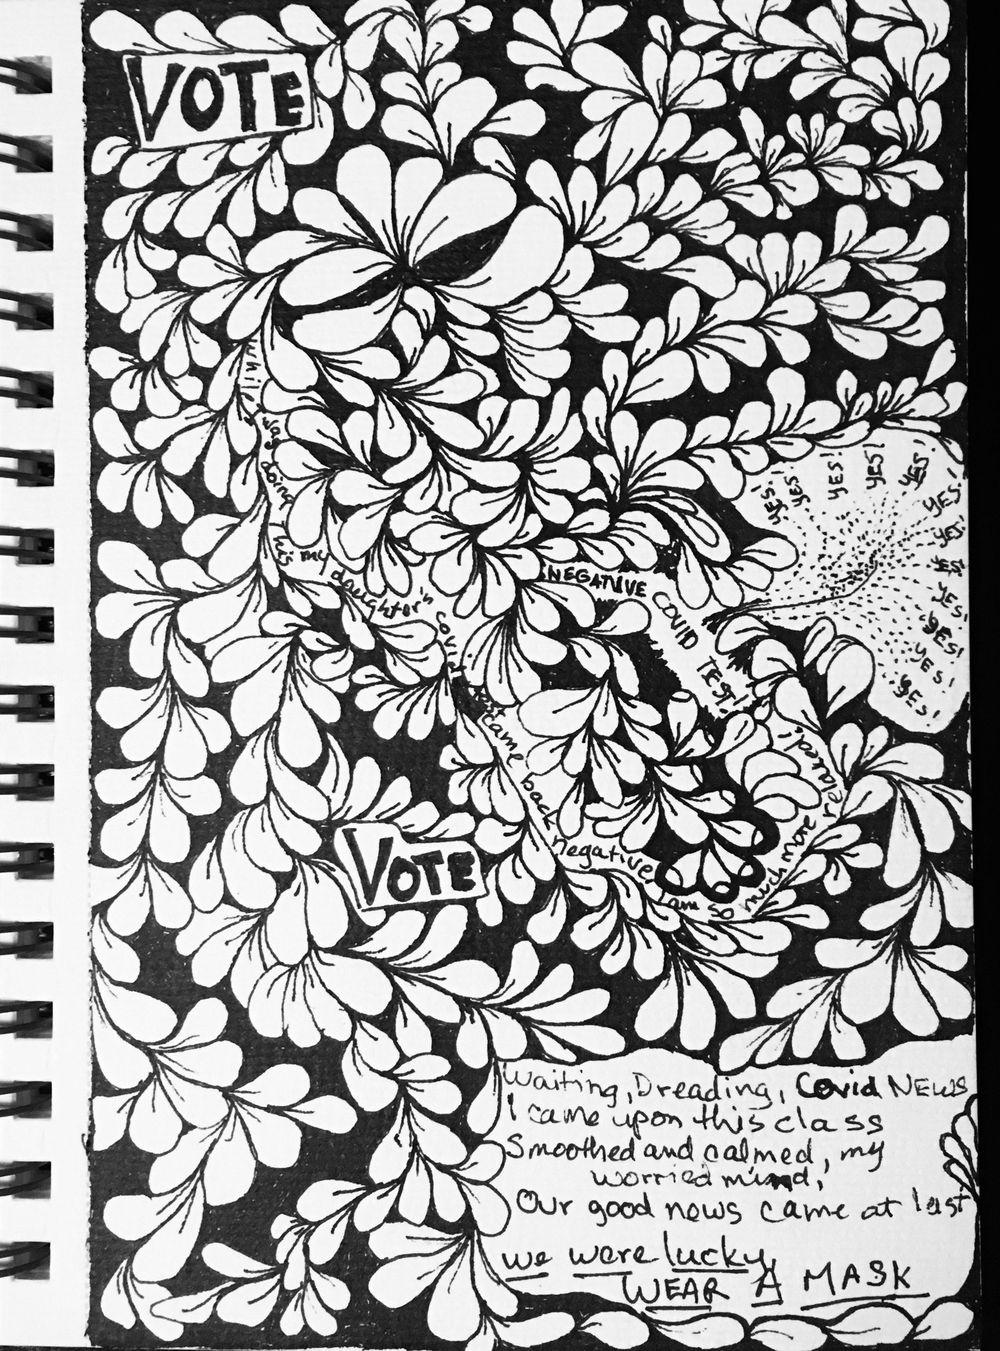 VOTE
while I was doing this my daughter's covid test came back negative I am so much more relaxed!
NEGATIVE COVID TEST!
YES!
YES!
YES!
YES!
YES!
YES!
YES!
YES!
YES!
YES!
YES!
YES!
VOTE
Waiting, Dreading, Covid NEWS
I came upon this class
Smoothed and calmed, my
worried mind,
Our good news came at last
we were lucky,
WEAR A MASK